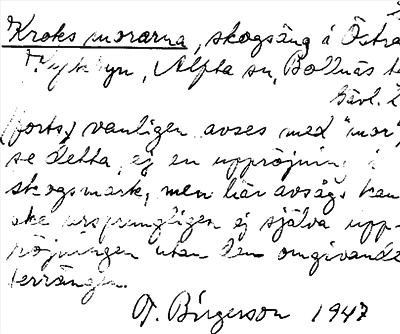 Kroks morarna, skogsäng i Östra
byn, Alfta sn, Bollnäs
Gävl. l
(forts.) vanligen avses med "mor",
se detta, ej en uppröjning i
skogsmark, men här avsågs kan
ske ursprungligen ej själva upp-
röjningen utan den omgivande
terrängen.
T. Birgerson 1947